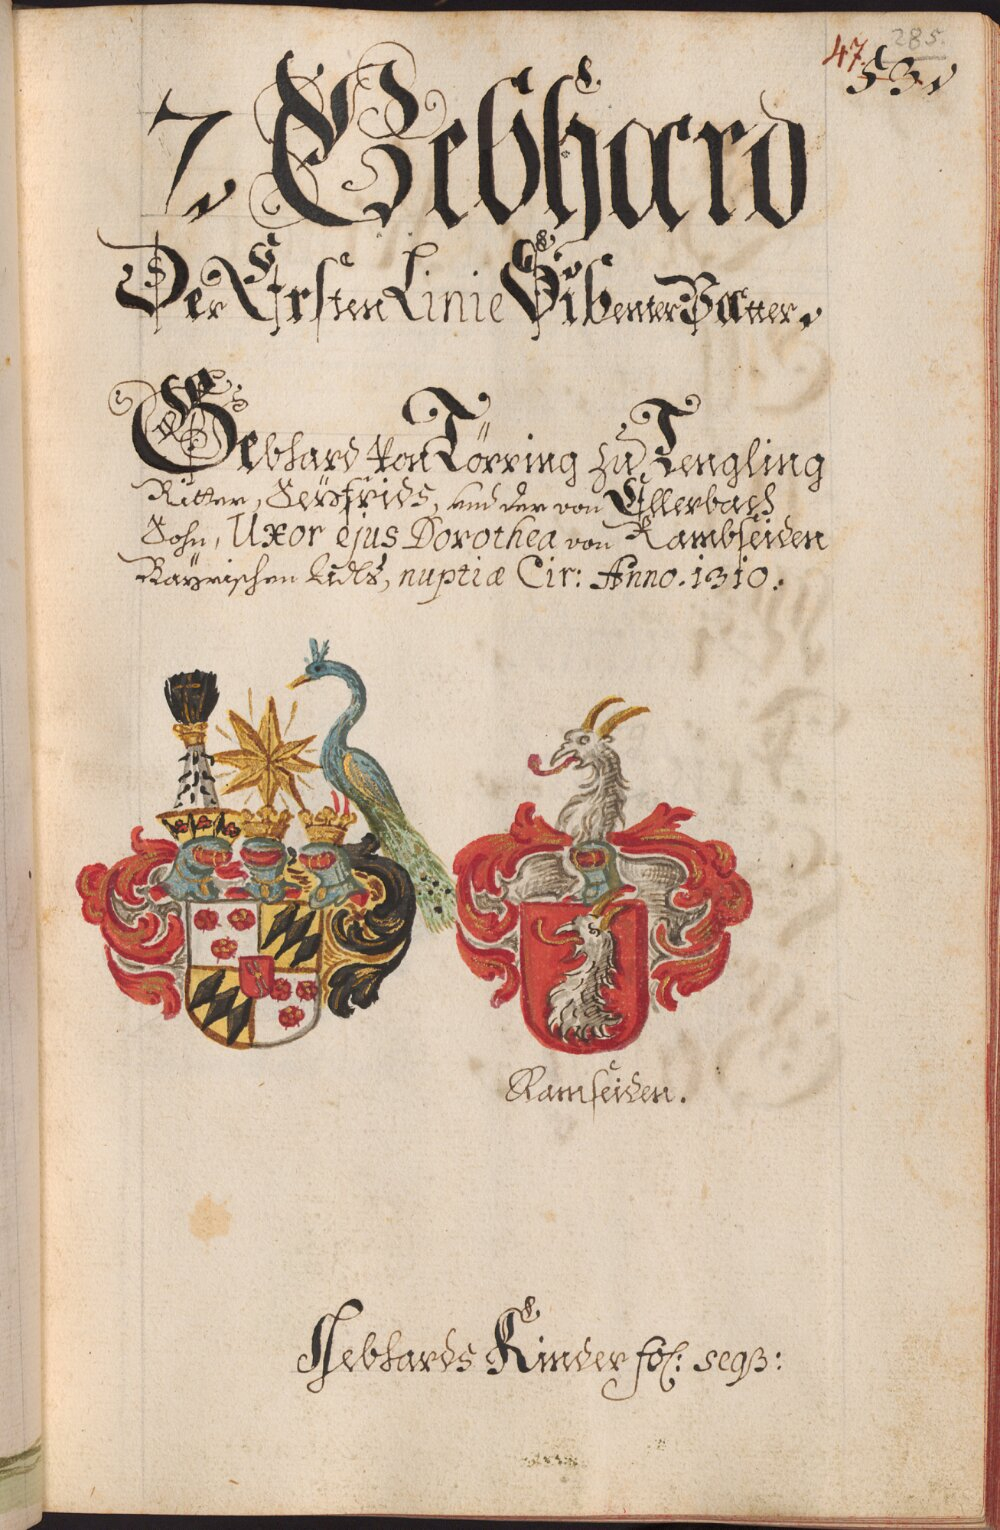 47. 285.
53.
7. Gebhard
Der Ersten Linie Sibenter Vatter.
Gebhard von Törring zu Tengling
Ritter, Seyfrids, und der von Ellerbach
Sohn, Uxor ejus Dorothea von Rambseiden
Bayrischen Adls, nuptiæ Cir: Anno. 1310.
Ramseiden.
Gebhards Kinder fol: seqß: